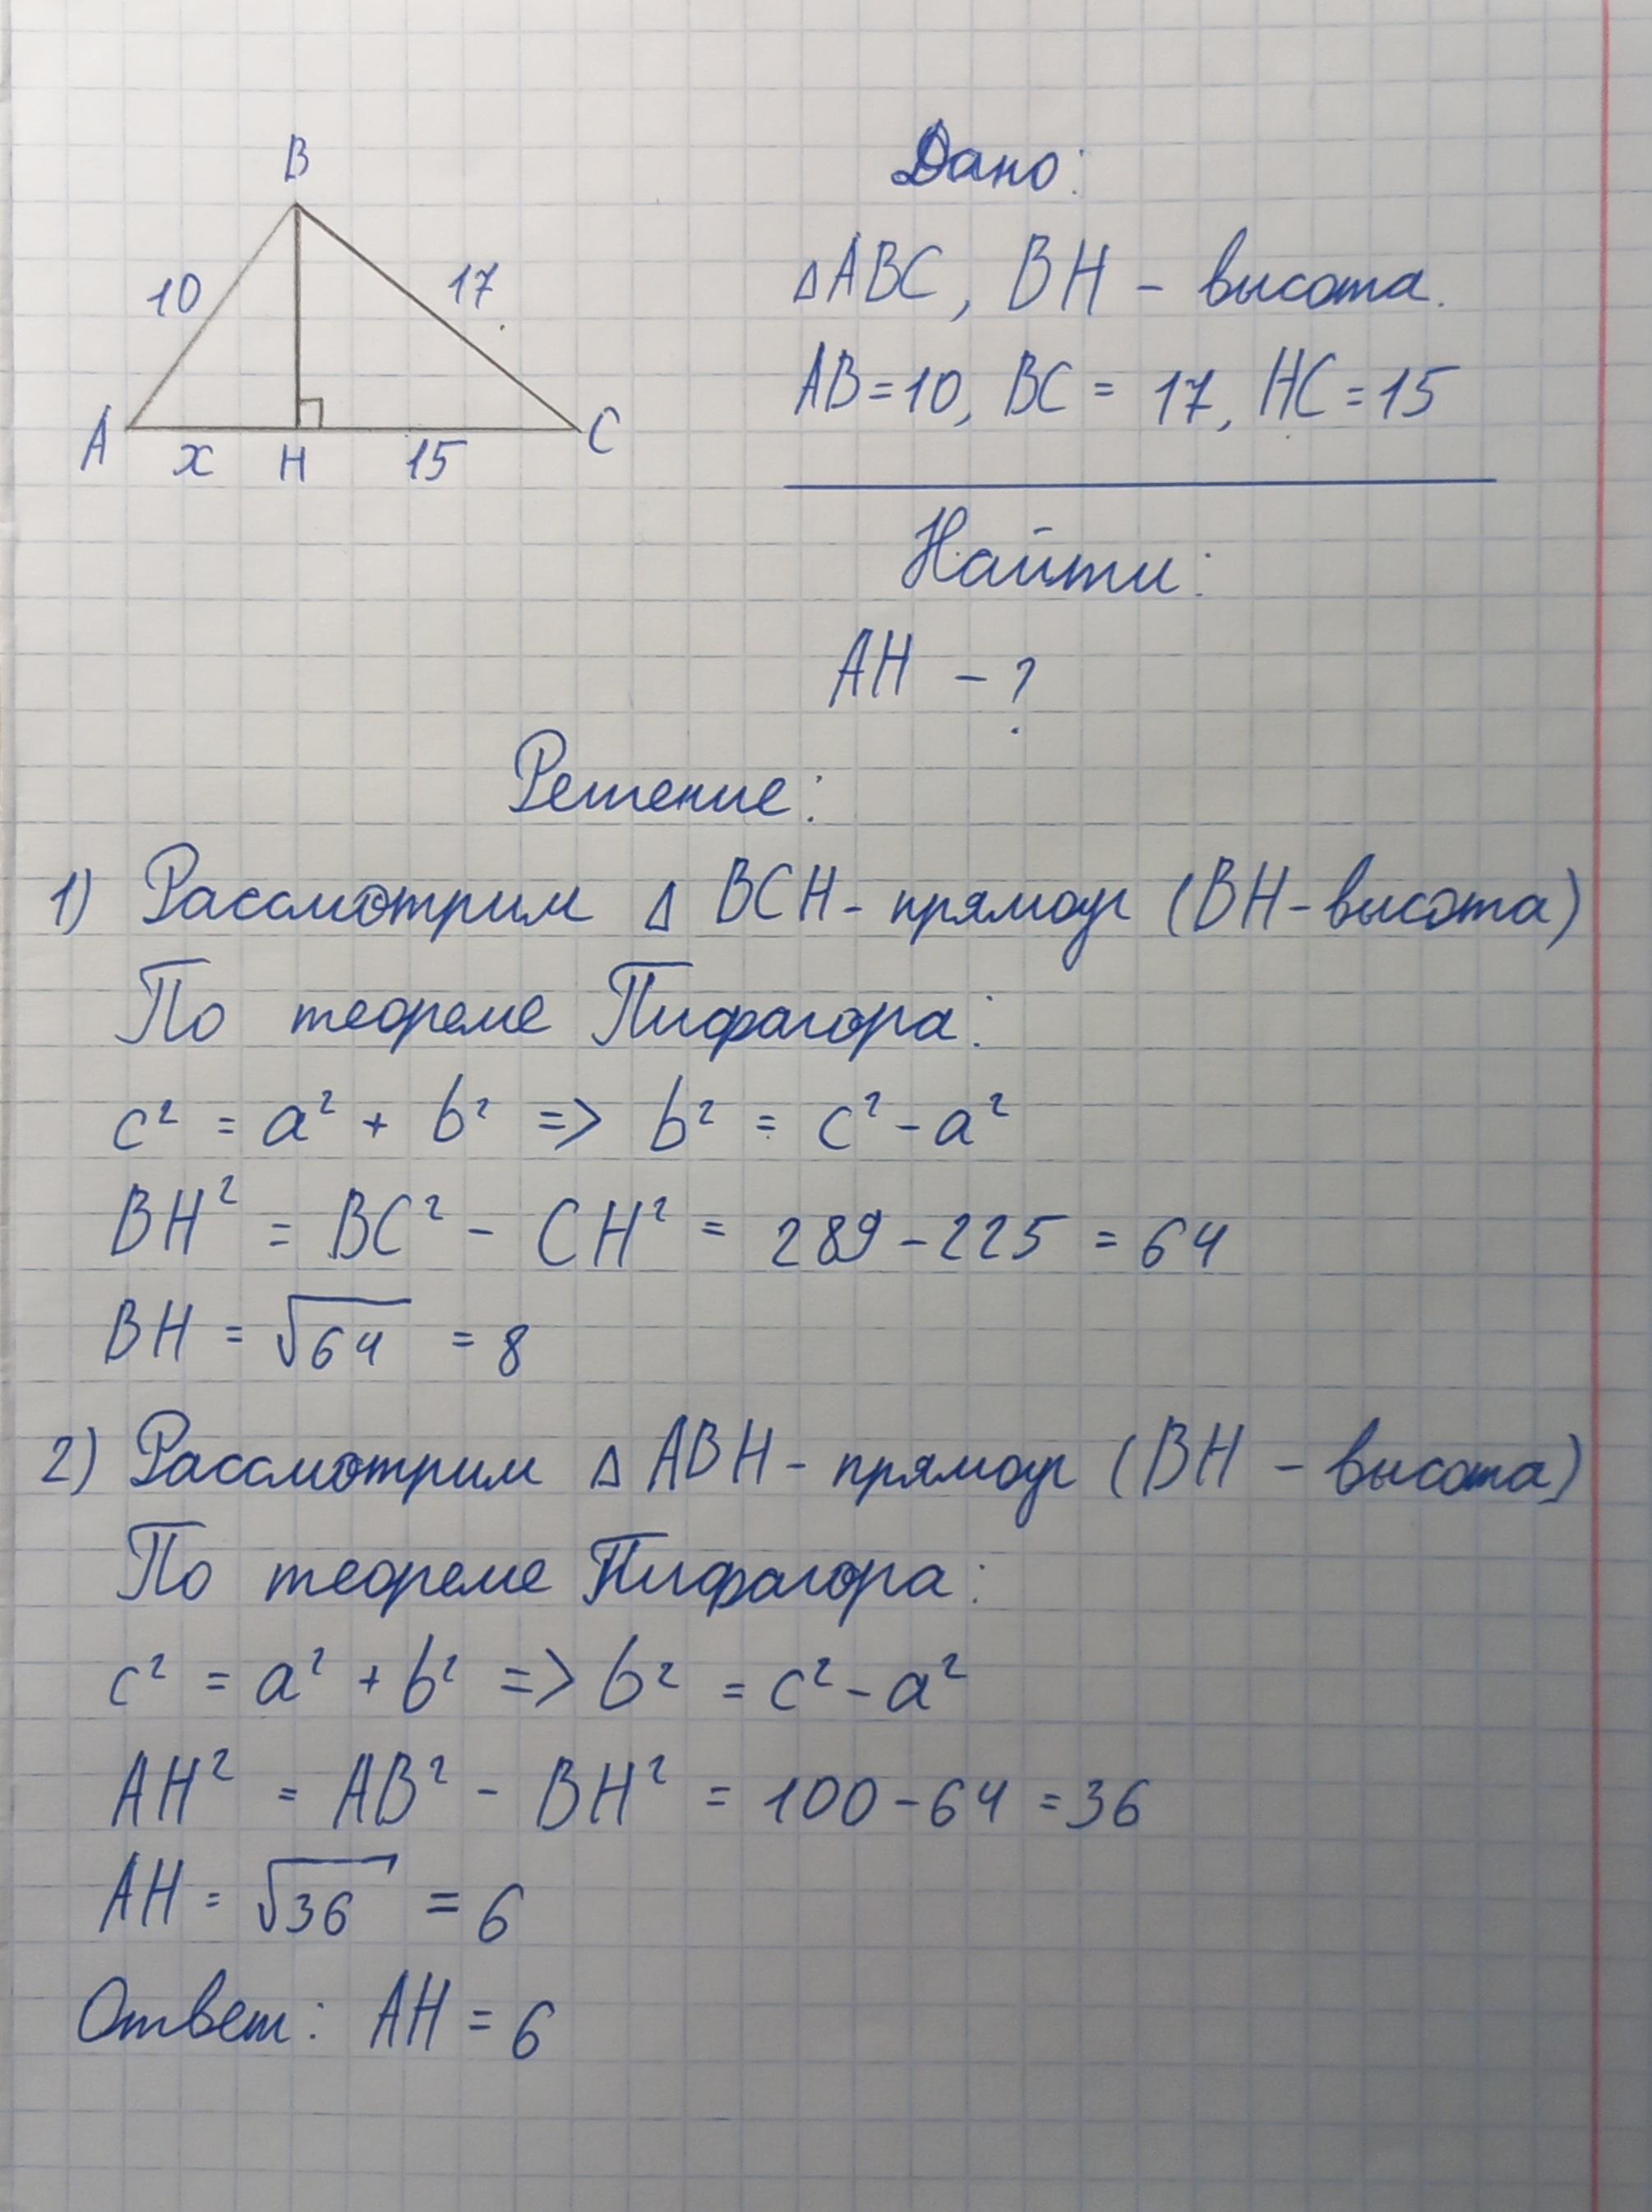 B
10
17
A
x
H
15
C
Дано:
△ABC, BH - высота.
AB=10, BC = 17, HC=15
Найти:
AH - ?
Решение:
1) Рассмотрим △ BCH - прямоуг (BH-высота)
По теореме Пифагора:
c² = a² + b² => b² = c² - a²
BH² = BC² - CH² = 289 - 225 = 64
BH = √64 = 8
2) Рассмотрим △ ABH - прямоуг (BH - высота)
По теореме Пифагора:
c² = a² + b² => b² = c² - a²
AH² = AB² - BH² = 100 - 64 = 36
AH = √36 = 6
Ответ: AH = 6